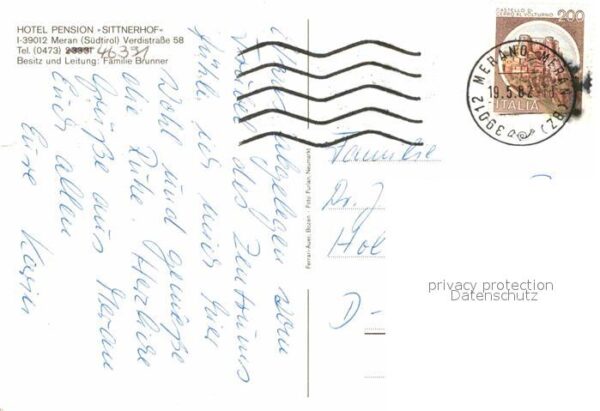 HOTEL PENSION »SITTNERHOF«
I-39012 Meran (Südtirol) Verdistraße 58
Tel. (0473) 46331
Besitz und Leitung: Familie Brunner
CASTELLO DI
CERRO AL VOLTURNO
200
ITALIA
39012 MERANO MERAN (BZ)
19.5.82
abgelegen vom
Trubel des Zentrums
fühle ich mich hier
wohl und genieße
die Ruhe. Herzliche
Grüße aus Meran
Euch allen
Eure
Ferrari-Auer, Bozen - Foto: Furlan, Neumarkt
Familie
Dr. J
Hol
D-
privacy protection
Datenschutz